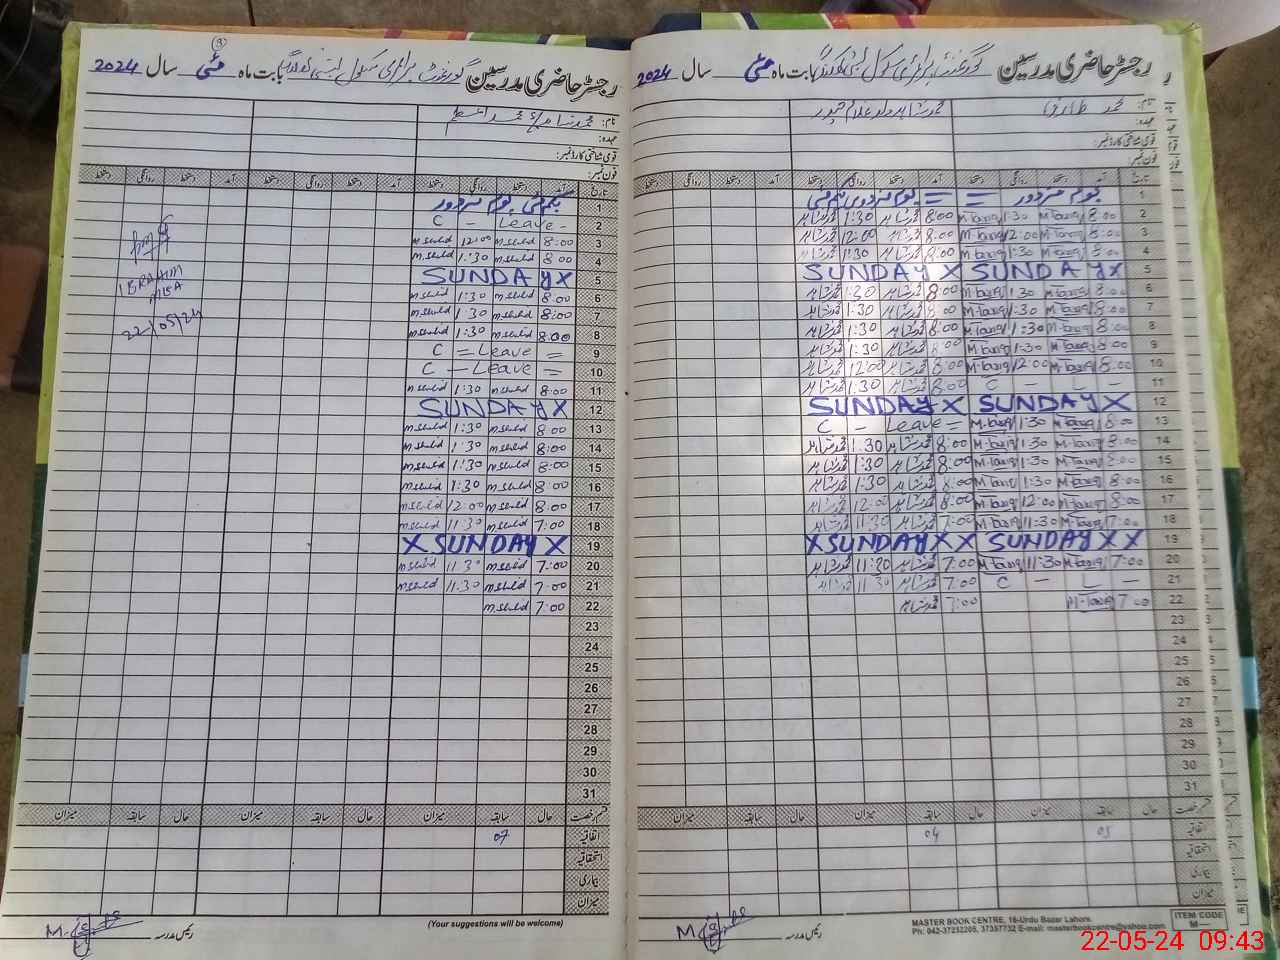 رجسٹر حاضری مدرسین گورنمنٹ پرائمری سکول بابت ماہ مئی سال 2024
نام: محمد طارق محمد شاہد ولد غلام
عہدہ:
قومی شناختی کارڈ نمبر:
فون نمبر:
تاریخ آمد دستخط روانگی دستخط آمد دستخط روانگی دستخط آمد دستخط روانگی دستخط
1 یوم مزدور = = یوم مزدور یکم مئی
2 8:00 M-Tariq 1:30 M-Tariq 8:00 محمد شاہد 1:30 محمد شاہد
3 8:00 M-Tariq 12:00 M-Tariq 8:00 محمد شاہد 12:00 محمد شاہد
4 8:00 M-Tariq 1:30 M-Tariq 8:00 محمد شاہد 1:30 محمد شاہد
5 SUNDAY X SUNDAY X
6 8:00 M-Tariq 1:30 M-Tariq 8:00 محمد شاہد 1:30 محمد شاہد
7 8:00 M-Tariq 1:30 M-Tariq 8:00 محمد شاہد 1:30 محمد شاہد
8 8:00 M-Tariq 1:30 M-Tariq 8:00 محمد شاہد 1:30 محمد شاہد
9 8:00 M-Tariq 1:30 M-Tariq 8:00 محمد شاہد 1:30 محمد شاہد
10 8:00 M-Tariq 12:00 M-Tariq 8:00 محمد شاہد 12:00 محمد شاہد
11 C - L - 8:00 محمد شاہد 1:30 محمد شاہد
12 SUNDAY X SUNDAY X
13 8:00 M-Tariq 1:30 M-Tariq C - Leave =
14 8:00 M-Tariq 1:30 M-Tariq 8:00 محمد شاہد 1:30 محمد شاہد
15 8:00 M-Tariq 1:30 M-Tariq 8:00 محمد شاہد 1:30 محمد شاہد
16 8:00 M-Tariq 1:30 M-Tariq 8:00 محمد شاہد 1:30 محمد شاہد
17 8:00 M-Tariq 12:00 M-Tariq 8:00 محمد شاہد 12:00 محمد شاہد
18 7:00 M-Tariq 11:30 M-Tariq 7:00 محمد شاہد 11:30 محمد شاہد
19 X SUNDAY X X SUNDAY X X
20 7:00 M-Tariq 11:30 M-Tariq 7:00 محمد شاہد 11:30 محمد شاہد
21 C - L - 7:00 محمد شاہد 11:30 محمد شاہد
22 7:00 M-Tariq 7:00 محمد شاہد
23
24
25
26
27
28
29
30
31
قسم رخصت حال سابقہ میزان حال سابقہ میزان حال سابقہ میزان
اتفاقیہ 05 04
استحقاقیہ
بیماری
میزان
رئیس مدرسہ
MASTER BOOK CENTRE, 16-Urdu Bazar Lahore.
Ph: 042-37232205, 37357732 E-mail: masterbookcentre@yahoo.com
ITEM CODE
M—
رجسٹر حاضری مدرسین گورنمنٹ پرائمری سکول بابت ماہ مئی سال 2024
نام:
عہدہ:
قومی شناختی کارڈ نمبر:
فون نمبر:
تاریخ آمد دستخط روانگی دستخط آمد دستخط روانگی دستخط آمد دستخط روانگی دستخط
1 یکم مئی یوم مزدور
2 C - Leave -
3 8:00 msulid 12:00 msulid
4 8:00 msulid 1:30 msulid
5 SUNDAY X
6 8:00 msulid 1:30 msulid
7 8:00 msulid 1:30 msulid
8 8:00 msulid 1:30 msulid
9 C = Leave =
10 C - Leave =
11 8:00 msulid 1:30 msulid
12 SUNDAY X
13 8:00 msulid 1:30 msulid
14 8:00 msulid 1:30 msulid
15 8:00 msulid 1:30 msulid
16 8:00 msulid 1:30 msulid
17 8:00 msulid 12:00 msulid
18 7:00 msulid 11:30 msulid
19 X SUNDAY X
20 7:00 msulid 11:30 msulid
21 7:00 msulid 11:30 msulid
22 7:00 msulid
23
24
25
26
27
28
29
30
31
IBRAHIM
MEA
22/05/24
قسم رخصت حال سابقہ میزان حال سابقہ میزان حال سابقہ میزان
اتفاقیہ 07
استحقاقیہ
بیماری
میزان
رئیس مدرسہ
(Your suggestions will be welcome)
22-05-24 09:43